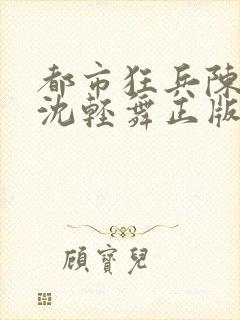 都市狂兵陳
沈輕舞正版
顧寶兒